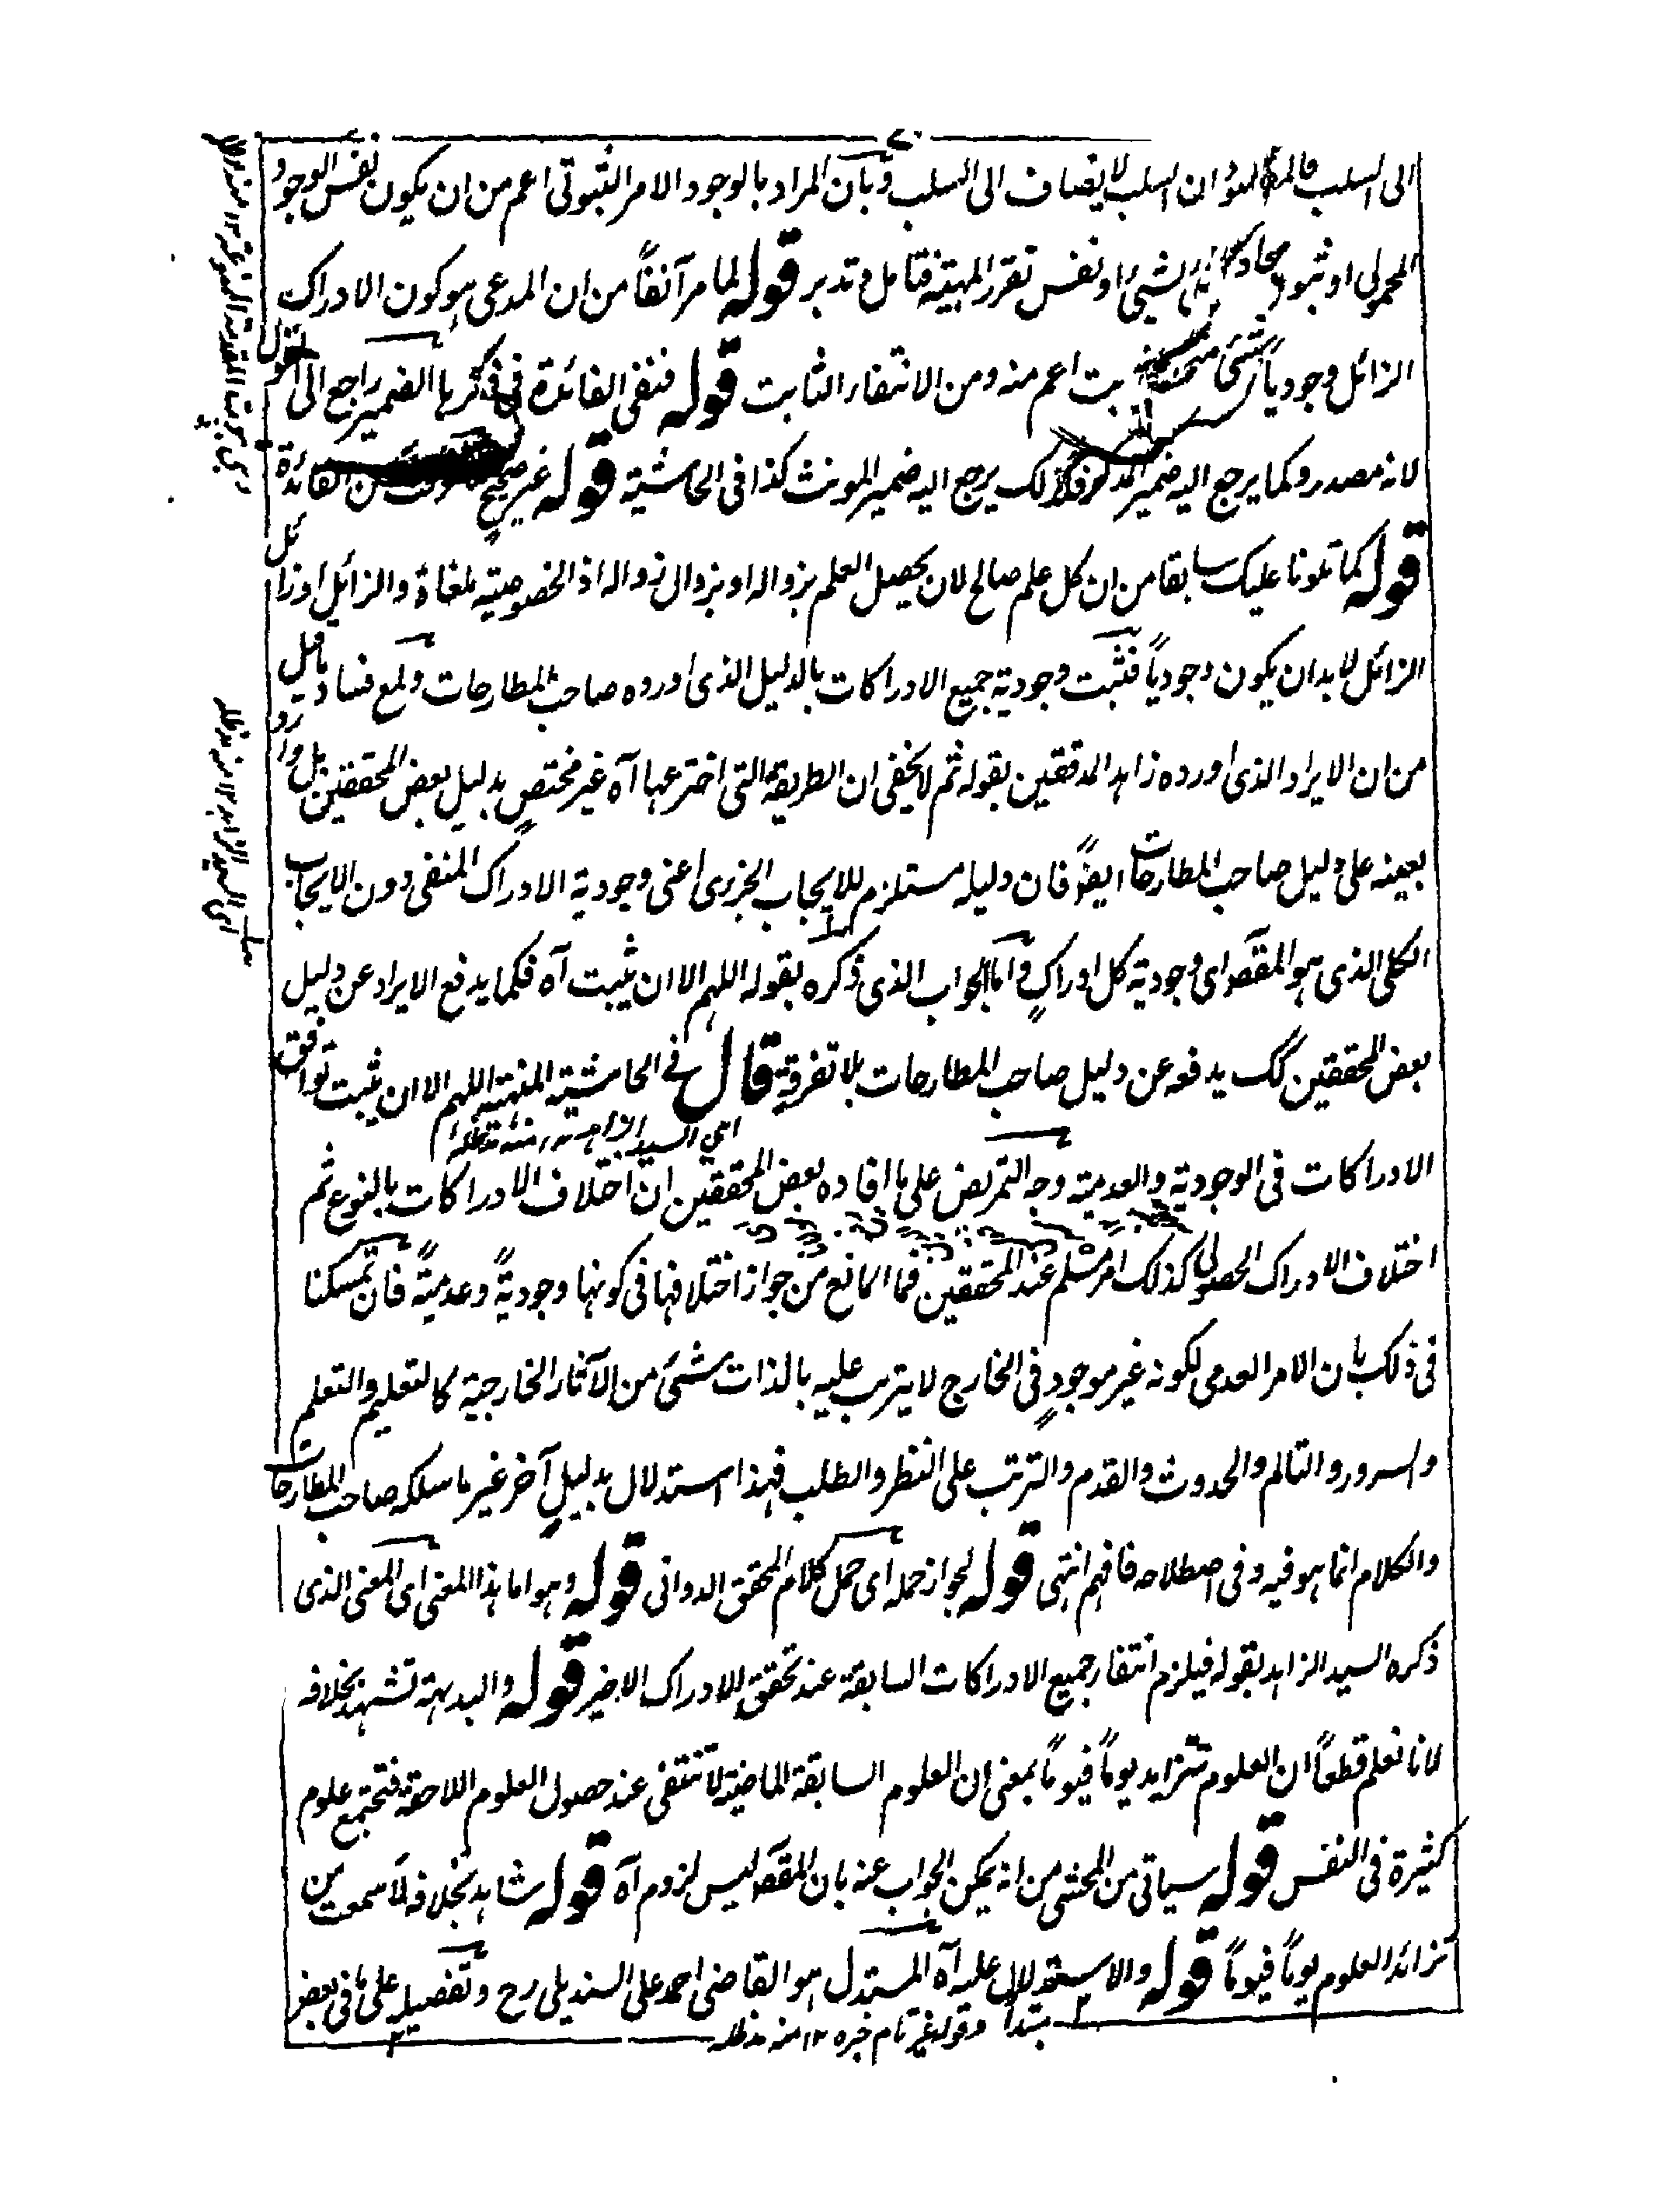 الى السلب ان السلب لا يضاف الى السلب وبان المراد بالوجود الامر الثبوتى اعم من ان يكون نفس الوجود
المحمولى او ثبوت الشئ او نفس تقرر المهية فتامل وتدبر قوله لما مر آنفاً من ان المدعى هو كون الادراك
الزائل وجودياً اعم منه ومن الانتفاء الثابت قوله فنفى الفائدة فى ذكرها الضمير راجع الى القول
لانه مصدر وكما يرجع اليه ضمير المذكر فكذلك يرجع اليه ضمير المونث كذا فى الحاشية قوله غير صحيح من الفائدة
قوله كما تلونا عليك سابقا من ان كل علم صالح لان يحصل العلم بزواله او بزوال زواله اذ الخصوصية ملغاة والزائل او زائل
الزائل لا بد ان يكون وجودياً فثبت وجودية جميع الادراكات بالدليل الذى اورده صاحب المطارحات ولمع فساد ما قيل
من ان الايراد الذى اورده زاهد المدققين بقوله ثم لا يخفى ان الطريقة التى اخترعها آه غير مختص بدليل بعض المحققين بل وارد
بعينه على دليل صاحب المطارحات ايضاً فان دليله مستلزم للايجاب الجزئى اعنى وجودية الادراك المنفى دون الايجاب
الكلى الذى هو المقصد اى وجودية كل ادراكٍ واما الجواب الذى ذكره بقوله اللهم الا ان يثبت آه فكما يدفع الايراد عن دليل
بعض المحققين كك يدفعه عن دليل صاحب المطارحات بلا تفرقةٍ قال فى الحاشية المنهية اللهم الا ان يثبت توافق
الادراكات فى الوجودية والعدمية وجه التمريض على ما افاده بعض المحققين ان اختلاف الادراكات بالنوع ثم
اختلاف الادراك الحصولى كذلك امر مسلم عند المحققين فما المانع من جواز اختلافها فى كونها وجوديةً وعدميةً فان تمسكنا
فى ذلك بان الامر العدمى لكونه غير موجودٍ فى الخارج لا يترتب عليه بالذات شئ من الآثار الخارجية كالتعليم والتعلم
والسرور والتالم والحدوث والقدم والترتب على النظر والطلب فهذا استدلال بدليلٍ آخر غير ما سلكه صاحب المطارحات
والكلام انما هو فيه وفى اصطلاحه فافهم انتهى قوله لجواز حمله اى حمل كلام المحقق الدوانى قوله وهو اما هذا المعنى اى المعنى الذى
ذكره السيد الزاهد بقوله فيلزم انتفاء جميع الادراكات السابقة عند تحقق الادراك الاخير قوله والبديهة تشهد بخلافه
لانا نعلم قطعاً ان العلوم تتزايد يوماً فيوماً بمعنى ان العلوم السابقة الماضية لا تنتفى عند حصول العلوم اللاحقة فتجتمع علوم
كثيرة فى النفس قوله سياتى من المحشى من انه يمكن الجواب عنه بان المقصد ليس لزوم آه قوله شاهد بخلافه لما سمعت من
تزائد العلوم يوماً فيوماً قوله والاستدلال عليه آه المستدل هو القاضى احمد على السنديلى رح وتفصيله على ما فى بعض
مبتدأ وقوله غير تام خبره ١٢ منه مدظله